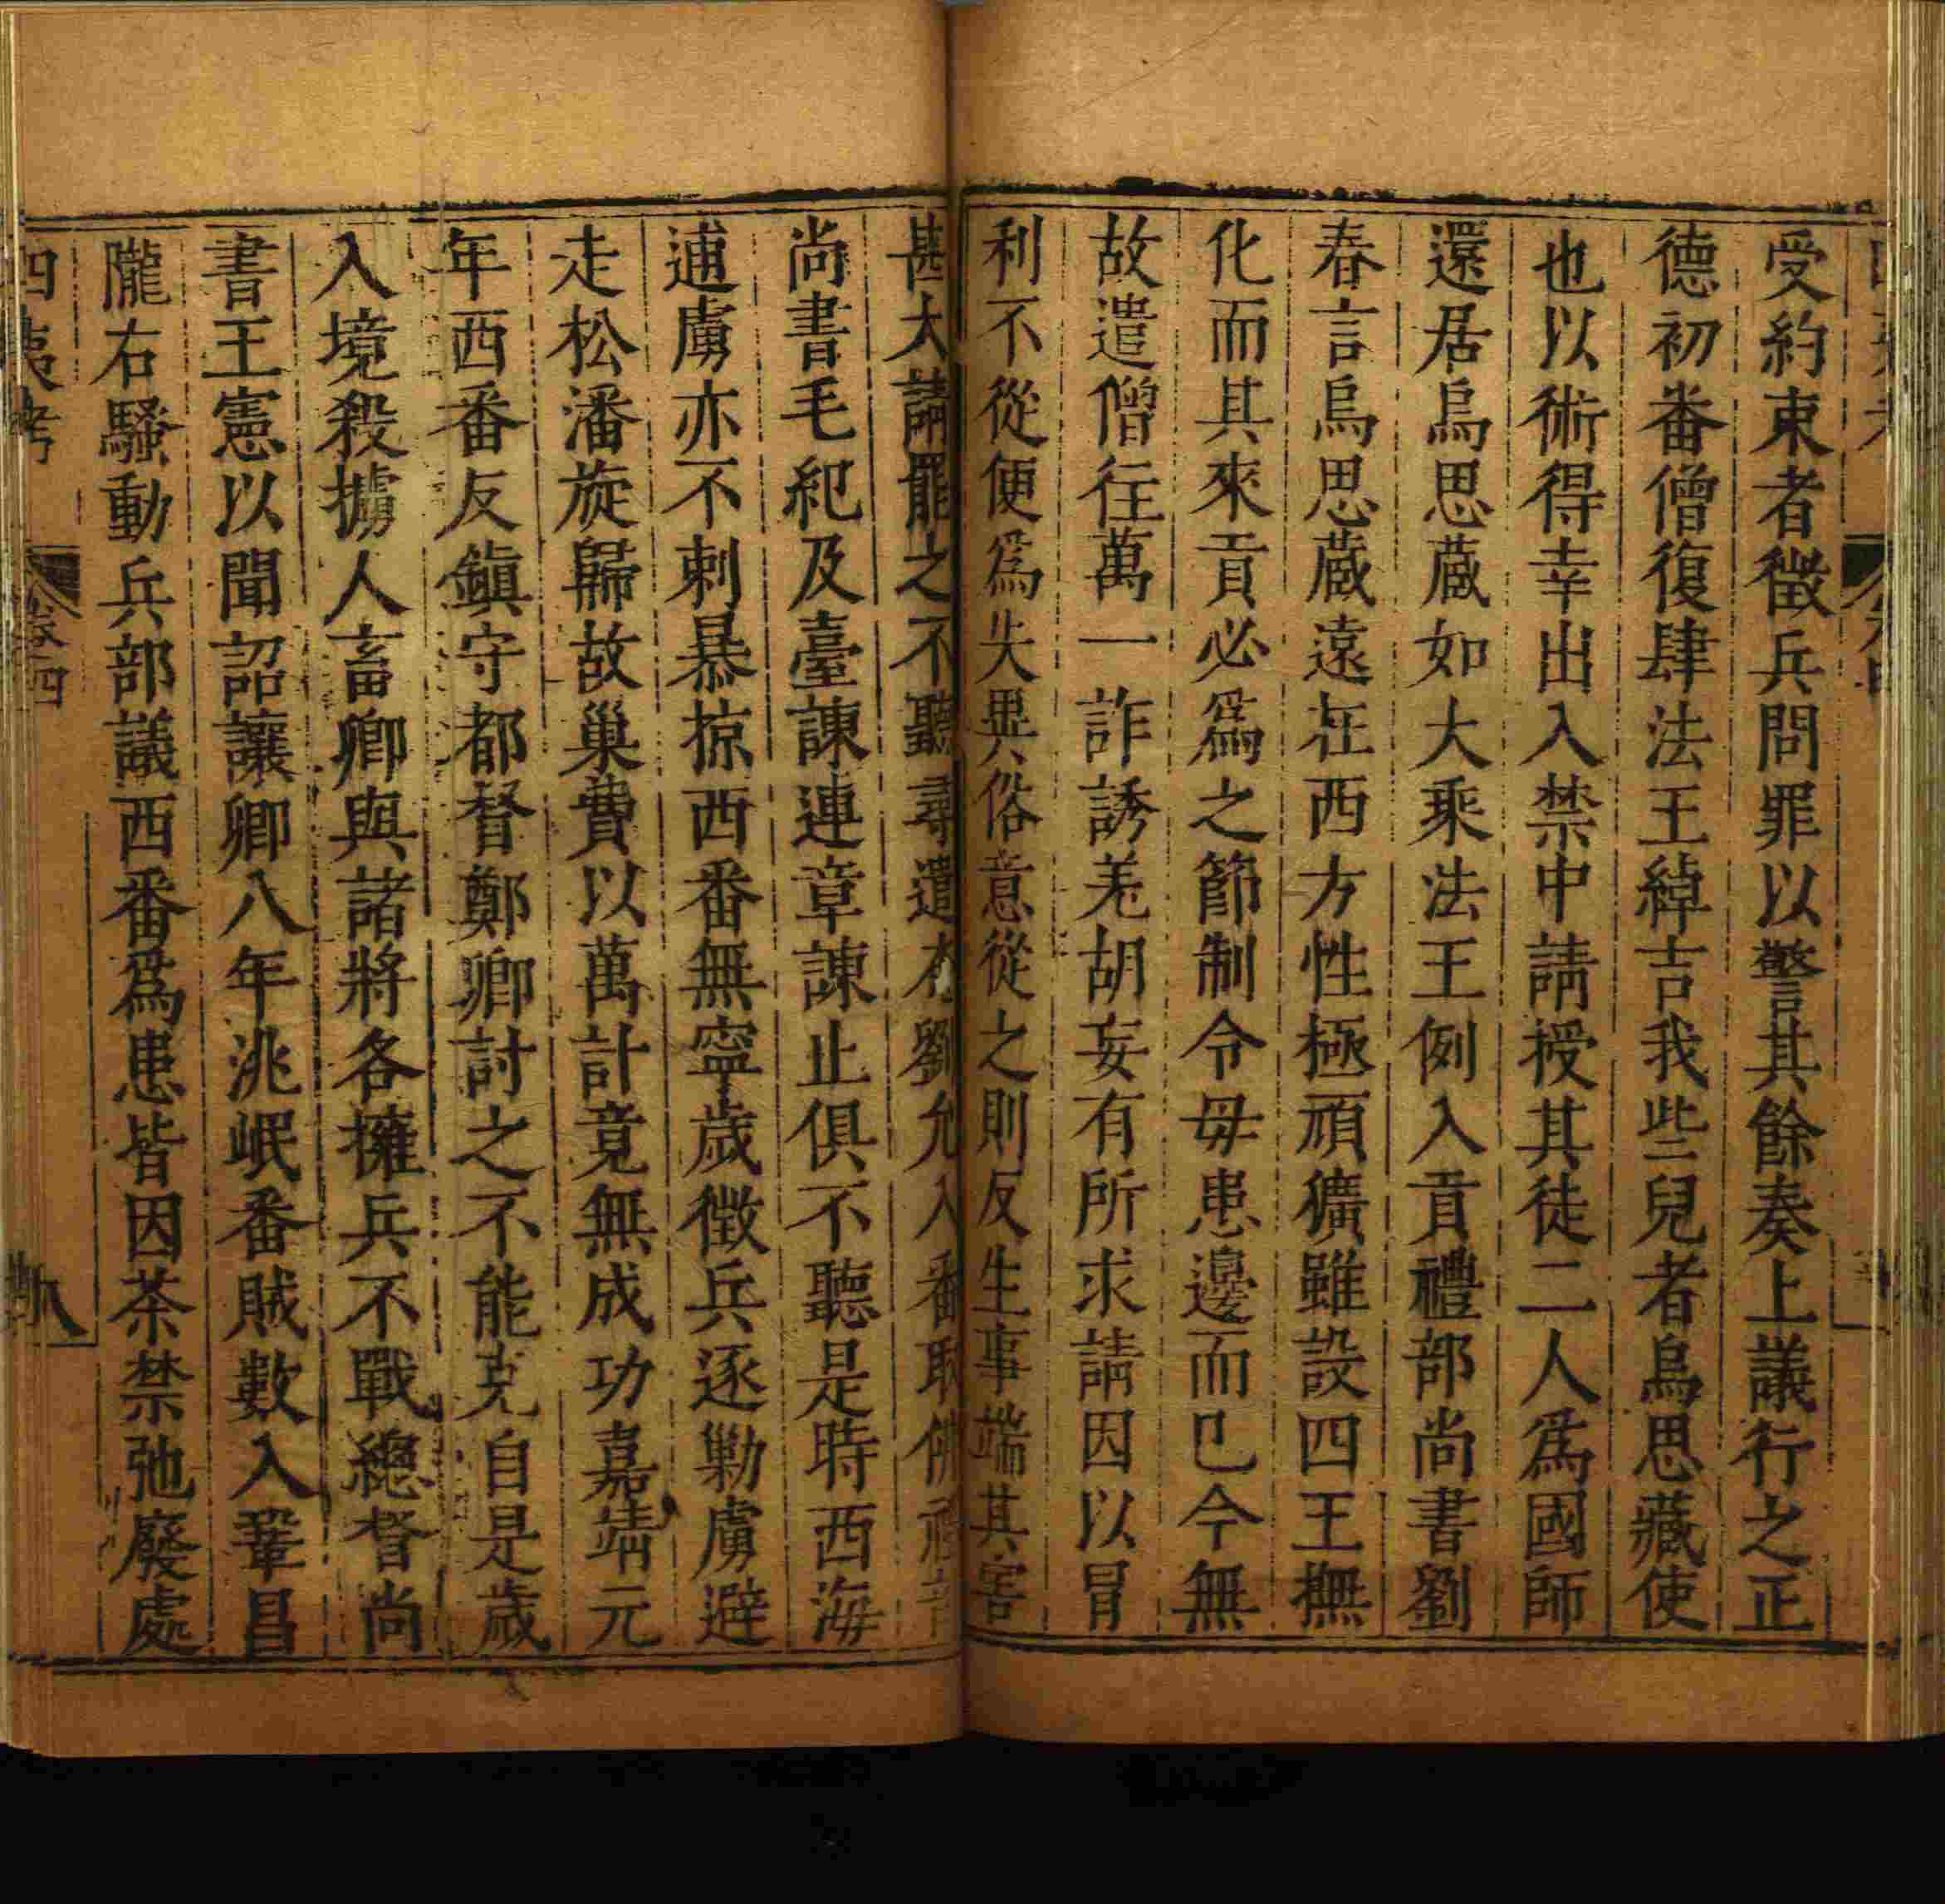 受約束者徵兵問罪以警其餘奏上議行之正
德初番僧復肆法王綽吉我些兒者烏思藏使
也以術得幸出入禁中請授其徒二人爲國師
還居烏思蔵如大乘法王例入貢禮部尚書劉
春言烏思蔵遠在西方性極頑獷雖設四王撫
化而其來貢必爲之節制令毋患邊而巳今無
故遣僧往萬一詐誘羌胡妄有所求請因以冒
利不從便爲失異俗意從之則反生事端其害
甚大請罷之不聽尋遣太劉允入番取佛
尚書毛紀及臺諫連章諫止俱不聽是時西海
逋虜亦不剌暴掠西番無寧歲徴兵逐勦虜避
走松潘旋歸故巢費以萬計竟無成功嘉靖元
年西番反鎮守都督鄭卿討之不能克自是歲
入境殺擄人畜卿與諸將各擁兵不戰總督尚
書王憲以聞詔讓卿八年洮岷番賊數入鞏昌
隴右騷動兵部議西番爲患皆因茶禁弛廢處
四夷考
卷四
八